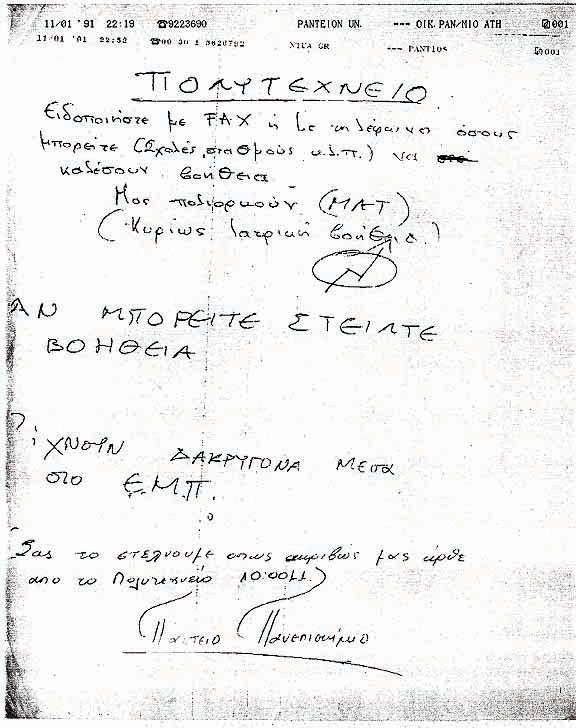 11/01 '91 22:19 ☎9223690 PANTEION UN. --- ΟΙΚ.ΡΑΝ/ΜΙΟ ΑΤΗ 001
11/01 '91 22:52 --- PANTIOS 001
ΠΟΛΥΤΕΧΝΕΙΟ
Ειδοποιήστε με FAX ή με τηλέφωνα όσους
μπορείτε (Σχολές, σταθμούς κ.λ.π.) να
καλέσουν βοήθεια
Μας πολιορκούν (ΜΑΤ)
(Κυρίως Ιατρική βοήθεια)
ΑΝ ΜΠΟΡΕΙΤΕ ΣΤΕΙΛΤΕ
ΒΟΗΘΕΙΑ
ΡίΧΝΟΥΝ ΔΑΚΡΥΓΟΝΑ ΜΕΣΑ
στο Ε.Μ.Π.
Σας το στέλνουμε όπως ακριβώς μας ήρθε
απο το Πολυτεχνείο 10:00μμ.)
Πάντειο Πανεπιστήμιο